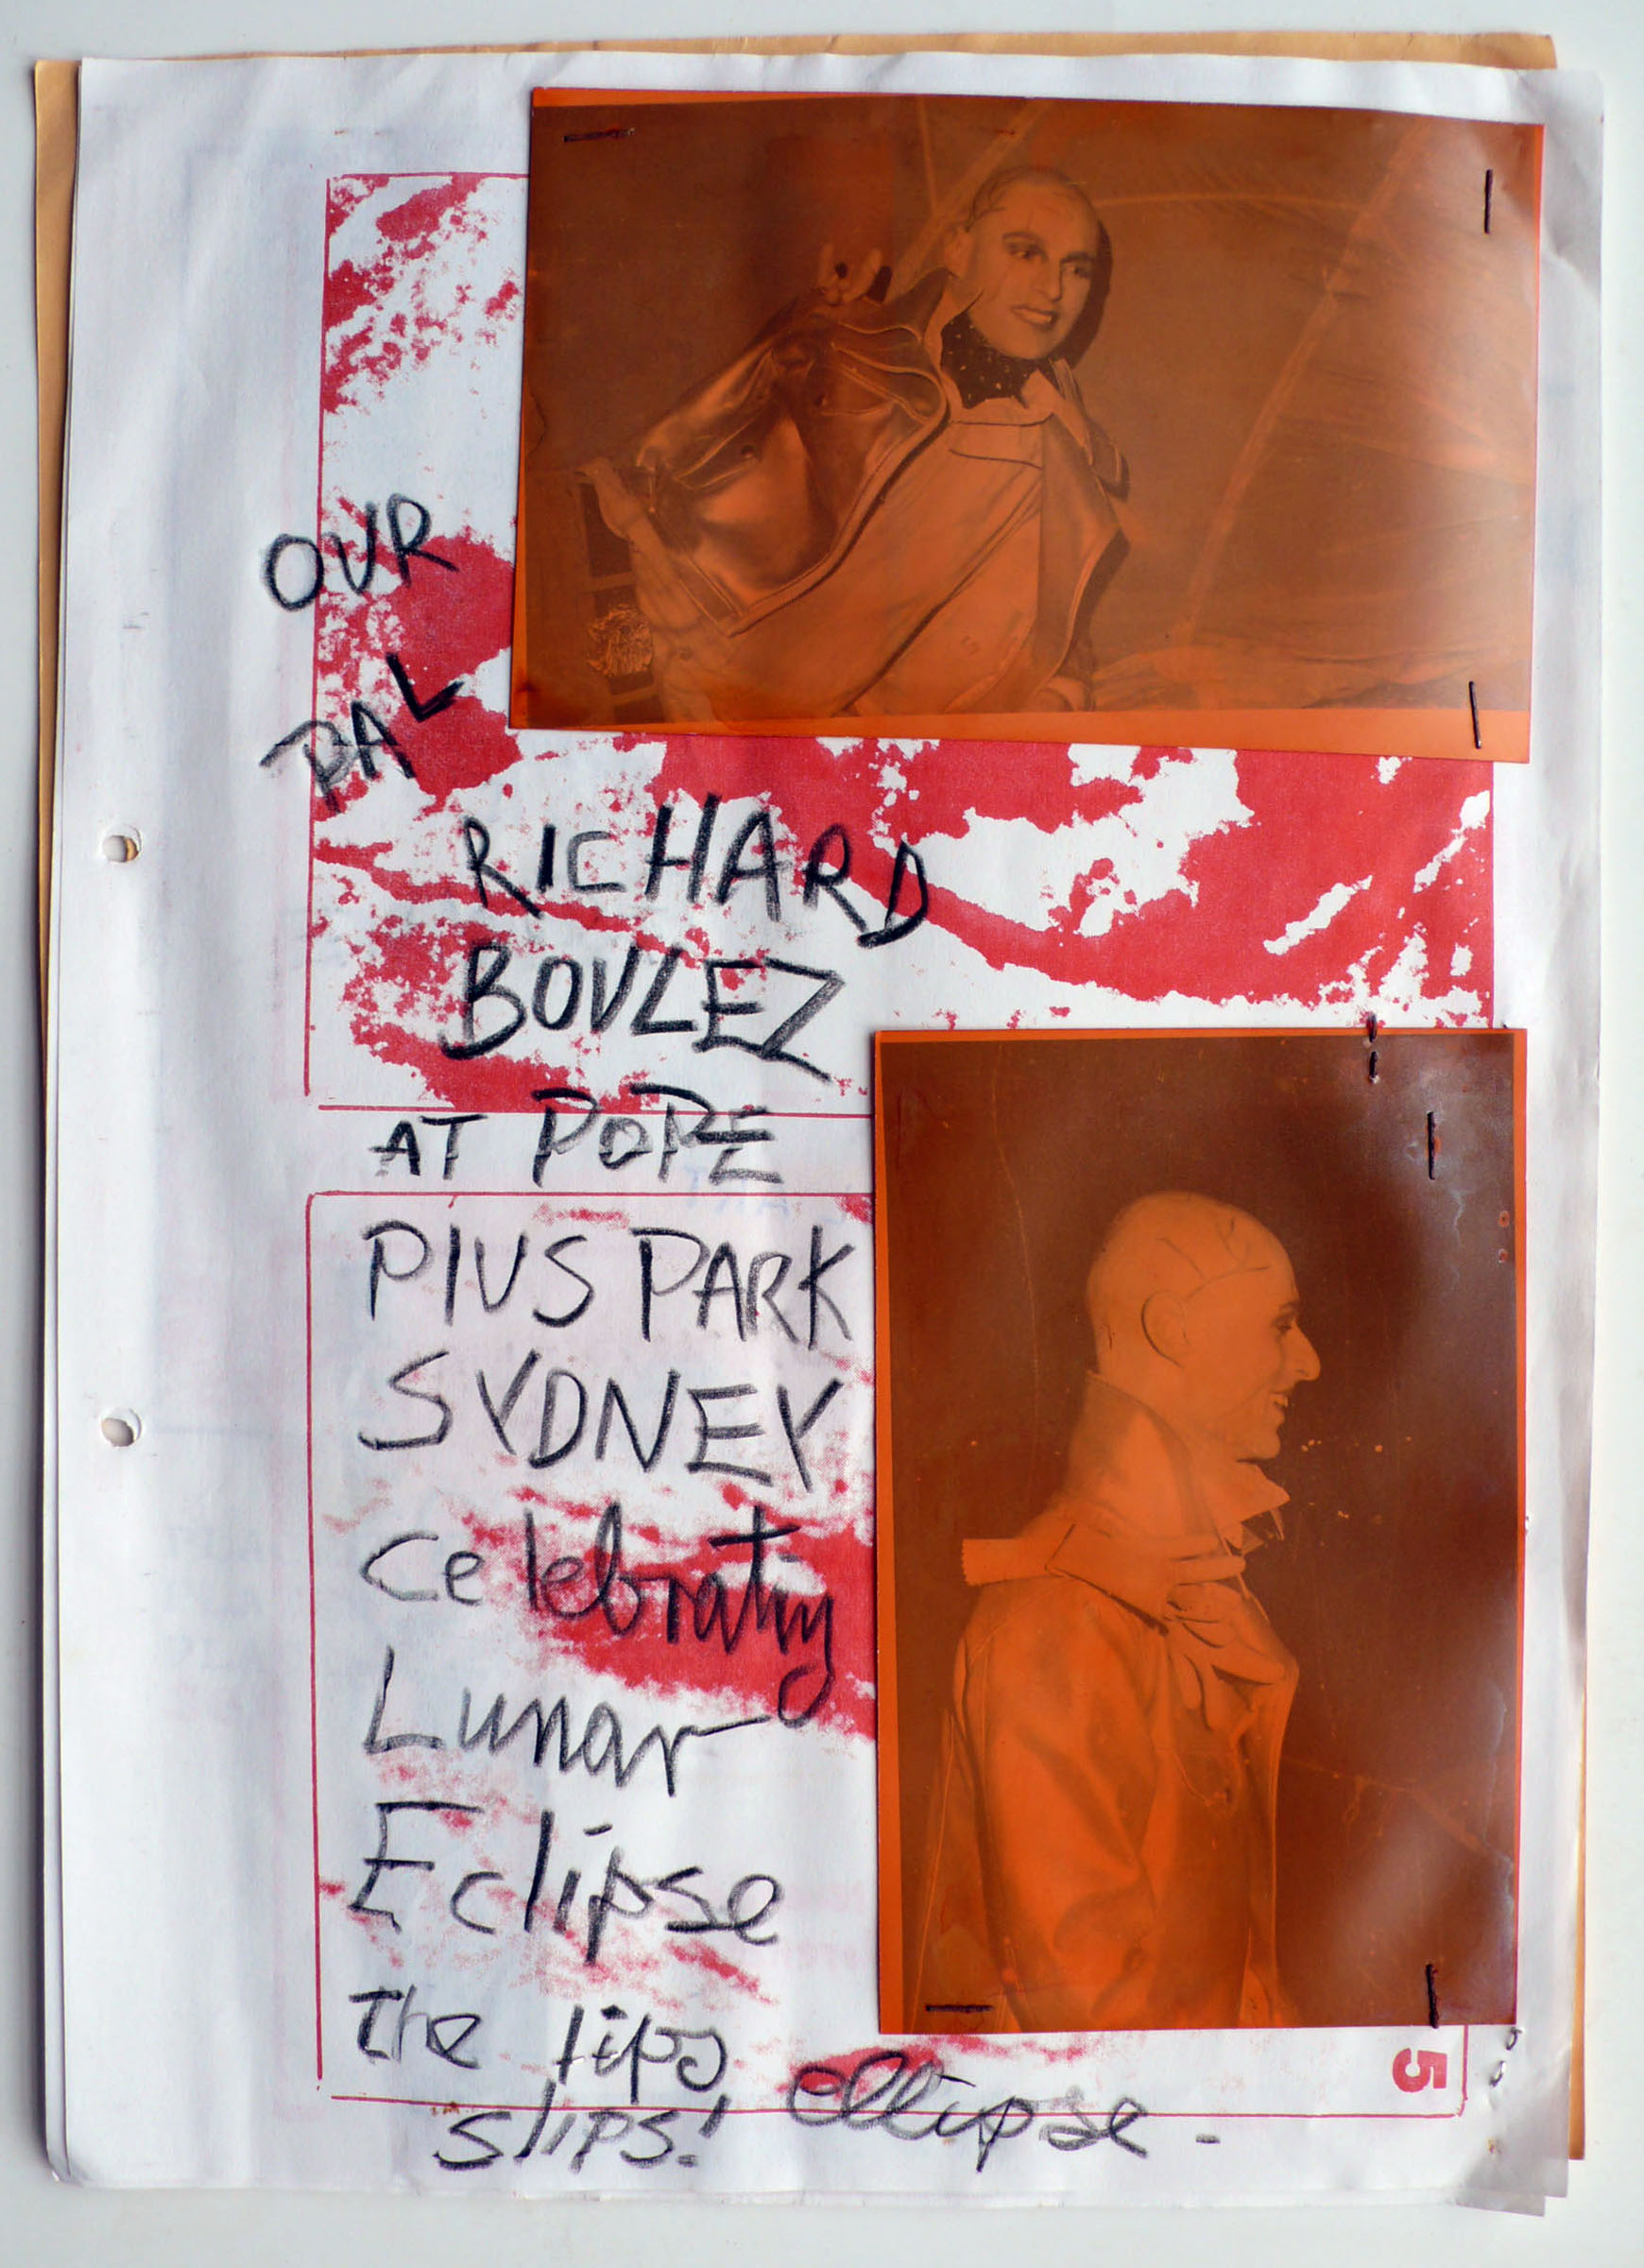 OUR
PAL
RICHARD
BOULEZ
AT POPE
PIUS PARK
SYDNEY
celebrating
Lunar
Eclipse
The lips
slips! ellipse.
5